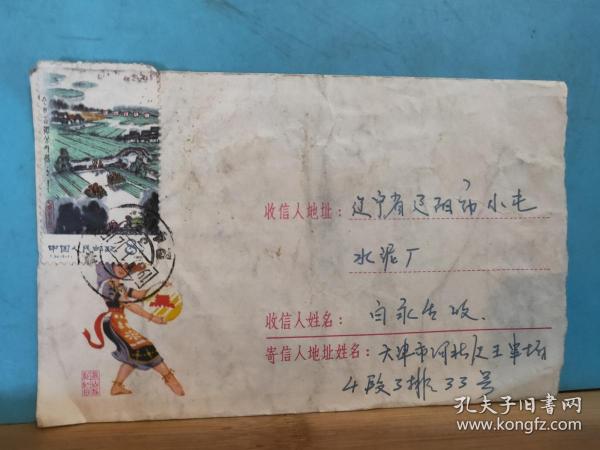 中国人民邮政
收信人地址: 辽宁省辽阳市小屯
水泥厂
收信人姓名: 白永生收.
寄信人地址姓名: 天津市河北区王串场
4段3排33号
孔夫子旧书网
www.kongfz.com